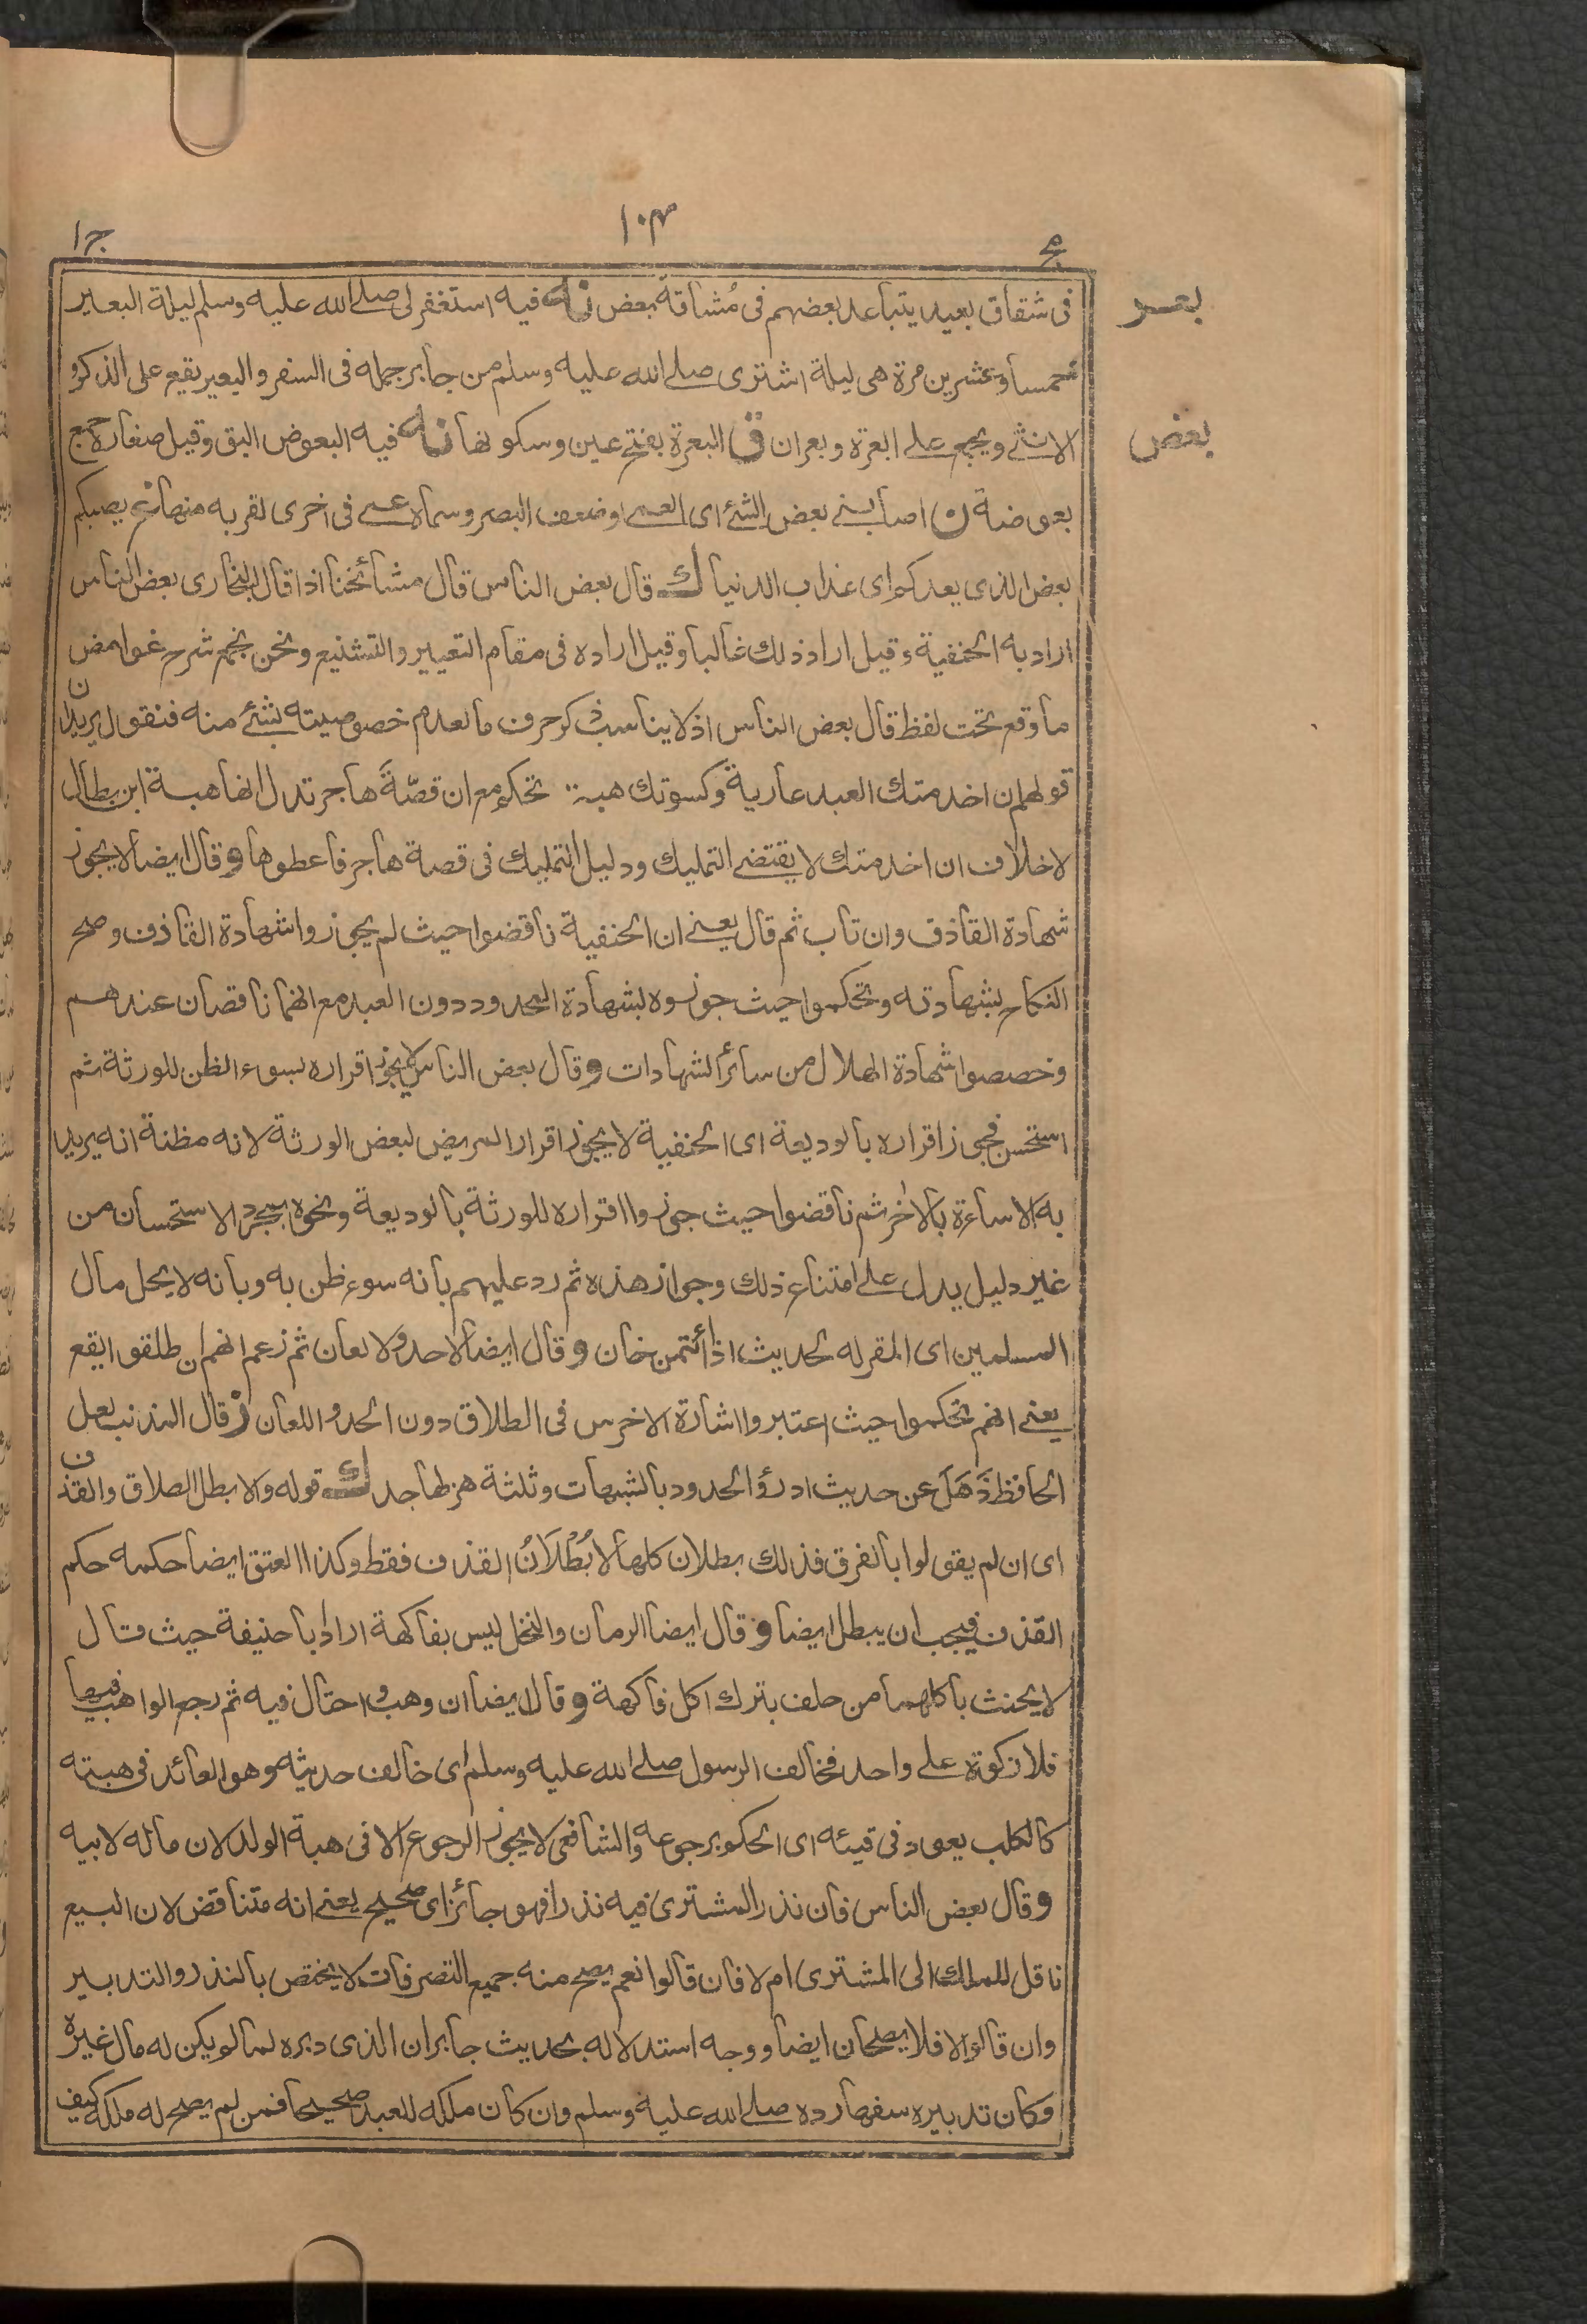 مج ۱۰۴ ج۱
فى شقاق بعيد يتباعد بعضهم فى مُشاقة بعض نه فيه استغفر لى صلے الله عليه وسلم ليلة البعير
بعر
خمسا وعشرين مرة هى ليلة اشترى صلے الله عليه وسلم من جابر جمله فى السفر والبعير يقع على الذكر و
الانثے ويجمع علے ابعرة وبعران ق البعرة بفتح عين وسكونها نه فيه البعوض البق وقيل صغاره جمع
بعض
بعوضة ن اصابنے بعض الشئ اى العمے او ضعف البصر وسماه عمے فى اخرى لقربه منها غ يصبكم
بعض الذى يعدكم اى عذاب الدنيا ك قال بعض الناس قال مشائخنا اذا قال البخارى بعض الناس
اراد به الحنفية وقيل اراد ذلك غالبا وقيل اراده فى مقام التعيير والتشنيع ونحن نجمع شرح غوامض
ما وقع تحت لفظ قال بعض الناس اذ لا يناسب ذكر حرف ما لعدم خصوصيته بشئ منه فنقول يريد ان
قولهم ان اخدمتك العبد عارية وكسوتك هبة تحكم مع ان قصّةَ هاجر تدل انها هبة ابن بطال
لا خلاف ان اخدمتك لا يقتضے التمليك ودليل التمليك فى قصة هاجر فاعطوها و قال ايضا لا يجوز
شهادة القاذف وان تاب ثم قال يعنے ان الحنفية ناقضوا حيث لم يجوزوا شهادة القاذف وصح
النكاح بشهادته وتحكموا حيث جوزوه بشهادة المحدود دون العبد مع انهما ناقصان عندهم
وخصصوا شهادة الهلال من سائر الشهادات و قال بعض الناس لا يجوز اقراره بسوء الظن للورثة ثم
استحسن فجوز اقراره بالوديعة اى الحنفية لا يجوز اقرار المريض لبعض الورثة لانه مظنة انه يريد
به الاساءة بالاٰخر ثم ناقضوا حيث جوزوا اقراره للورثة بالوديعة ونحوه بمجرد الاستحسان من
غير دليل يدل علے امتناع ذلك وجواز هذه ثم رد عليهم بانه سوء ظن به وبانه لا يحل مال
المسلمين اى المقر له لحديث اذا ائتمن خان و قال ايضا لا حد ولا لعان ثم زعم انهم ان طلقوا يقع
يعنے انهم تحكموا حيث اعتبروا اشارة الاخرس فى الطلاق دون الحد و اللعان ز قال المذنب لعل
الحافظ ذَهَلَ عن حديث ادرؤ الحدود بالشبهات وثلثة هزلها جد ك قوله والا بطل الطلاق والقذف
اى ان لم يقولوا بالفرق فذلك بطلان كلها لا بُطْلَانُ القذف فقط وكذا العتق ايضا حكمه حكم
القذف فيجب ان يبطل ايضا و قال ايضا الرمان والنخل ليس بفاكهة اراد ابا حنيفة حيث قال
لا يحنث باكلهما من حلف بترك اكل فاكهة و قال ايضا ان وهب و احتال فيه ثم رجع الواهب فيها
فلا زكوة علے واحد فخالف الرسول صلے الله عليه وسلم اى خالف حديثه وهو العائد فى هبته
كالكلب يعود فى قيئه اى الحكم برجوعه والشافعى لا يجوز الرجوع الا فى هبة الولد لان ماله لابيه
و قال بعض الناس فان نذر المشترى فيه نذرا فهو جائز اى صحيح يعنے انه متناقض لان البيع
ناقل للملك الى المشترى ام لا فان قالوا نعم يصح منه جميع التصرفات لا يختص بالنذر والتدبير
وان قالوا لا فلا يصحان ايضا ووجه استدلاله بحديث جابر ان الذى دبره لما لم يكن له مال غيره
وكان تدبيره سفها رده صلے الله عليه وسلم وان كان ملكه للعبد صحيحا فمن لم يصح له ملكه كيف